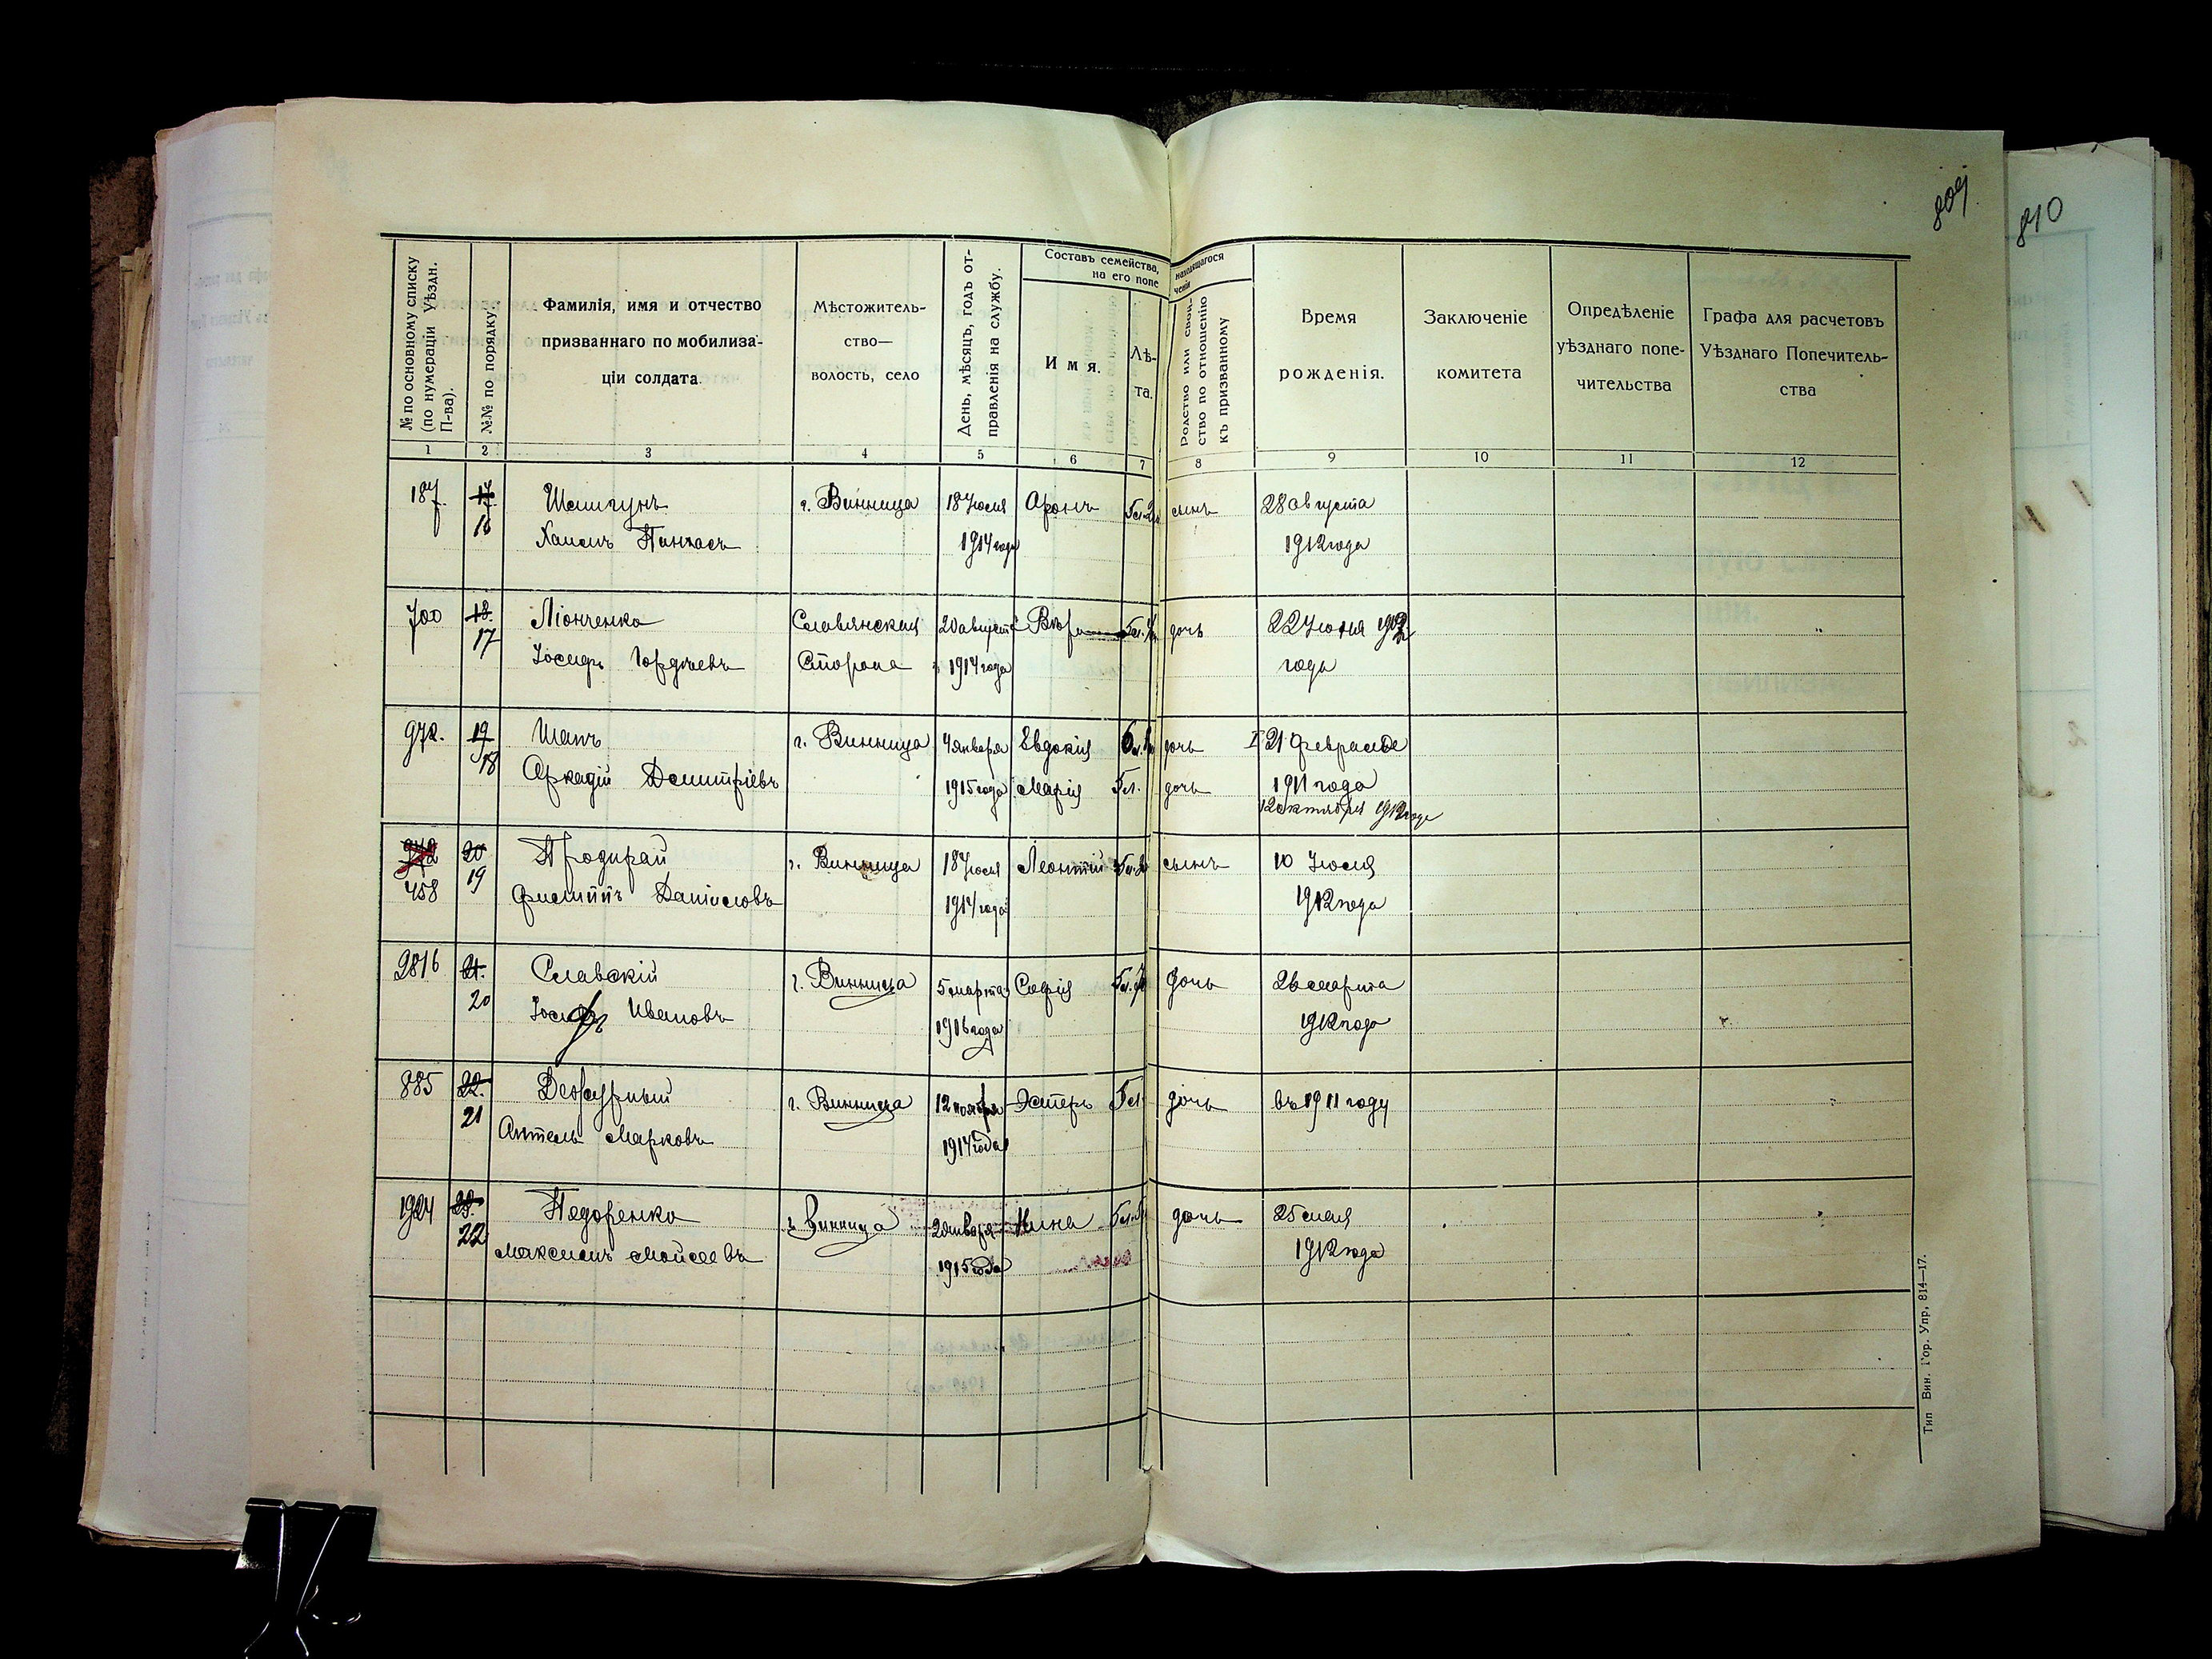 809
810
№ по основному списку
(по нумераціи Уѣздн.
П-ва).
№№ по порядку.
Фамилія, имя и отчество
призваннаго по мобилиза-
ціи солдата.
Мѣстожитель-
ство—
волость, село
День, мѣсяцъ, годъ от-
правленія на службу.
Составъ семейства, находящагося
на его попе ченіи
Имя.
Лѣ-
та.
Родство или свой-
ство по отношенію
къ призванному
Время
рожденія.
Заключеніе
комитета
Опредѣленіе
уѣзднаго попе-
чительства
Графа для расчетовъ
Уѣзднаго Попечитель-
ства
1 2 3 4 5 6 7 8 9 10 11 12
187 17 г. Винница 18 Іюля Аронъ сынъ 28 августа
16 1914 года 1912 года
700 18. Ліонченко Славянская 20 августа дочь 22
17 Іосифъ Гордѣевъ Сторона 1914 года года
972. 19 г. Винница 4 января Евдокія дочь 21 февраля
18 Аркадій Дмитріевъ 1915 года Марія 5 л. дочь 1911 года
12 октября 1912 года
972 20 г. Винница 18 Іюля Леонтій сынъ 10 Іюля
458 19 Филиппъ Даніиловъ 1914 года 1912 года
2816 21. Славскій г. Винница 5 марта Софія дочь 26 марта
20 Іосифъ Ивановъ 1916 года 1912 года
885 22. Дежурный г. Винница 12 ноября Эстеръ 5 л. дочь въ 1911 году
21 Марковъ 1914 года
1924 23. Педоренко г. Винница 2 января Нина дочь 25 мая
22 Максимъ Мойсеевъ 1915 года 1912 года
Тип Вин. Гор. Упр, 814—17.